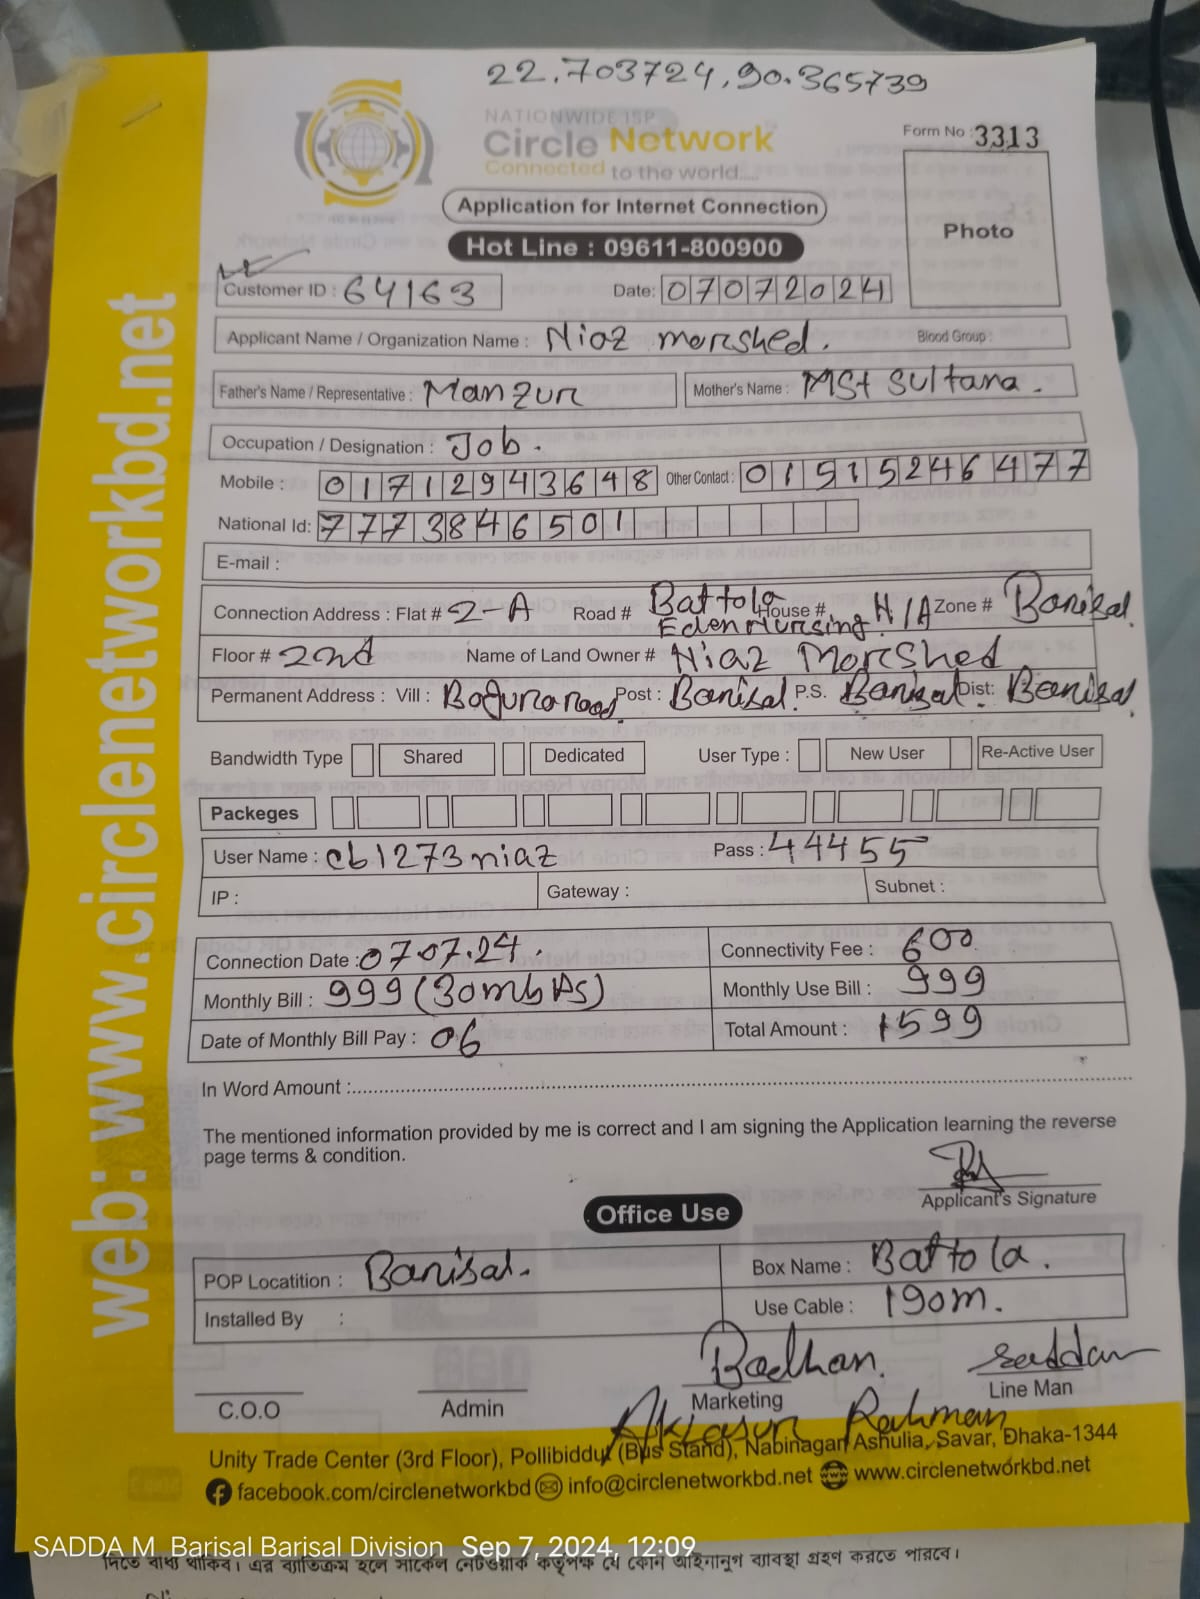 22.703724,90.365739
NATIONWIDE ISP
Circle Network
Connected to the world....
Form No : 3313
Application for Internet Connection
Photo
Hot Line : 09611-800900
Customer ID : 64163 Date: 07072024
Applicant Name / Organization Name : Niaz morshed. Blood Group :
Father's Name / Representative : Manzur Mother's Name : MSt Sultana.
Occupation / Designation : Job.
Mobile : 01712943648 Other Contact : 01515246477
National Id: 7773846501
E-mail :
Connection Address : Flat # 2-A Road # Battola Eden Nursing House # N/A Zone # Barisal.
Floor # 2nd Name of Land Owner # Niaz Morshed
Permanent Address : Vill : Bogura road, Post : Barisal. P.S. Barisal Dist: Barisal.
Bandwidth Type Shared Dedicated User Type : New User Re-Active User
Packeges
User Name : cb1273niaz Pass : 44455
IP : Gateway : Subnet :
Connection Date : 07.07.24. Connectivity Fee : 600
Monthly Bill : 999 (30mbps) Monthly Use Bill : 999
Date of Monthly Bill Pay : 06 Total Amount : 1599
In Word Amount :
The mentioned information provided by me is correct and I am signing the Application learning the reverse
page terms & condition.
Applicant's Signature
Office Use
POP Locatition : Barisal. Box Name : Battola.
Installed By : Use Cable : 190m.
Badhan. saddam
C.O.O Admin Marketing Line Man
Rahman
Unity Trade Center (3rd Floor), Pollibiddut (Bus Stand), Nabinagar Ashulia, Savar, Dhaka-1344
facebook.com/circlenetworkbd info@circlenetworkbd.net www.circlenetworkbd.net
web: www.circlenetworkbd.net
SADDA M Barisal Barisal Division Sep 7, 2024, 12:09
দিতে বাধ্য থাকিব। এর ব্যতিক্রম হলে সার্কেল নেটওয়ার্ক কর্তৃপক্ষ যে কোন আইনানুগ ব্যাবস্থা গ্রহণ করতে পারবে।